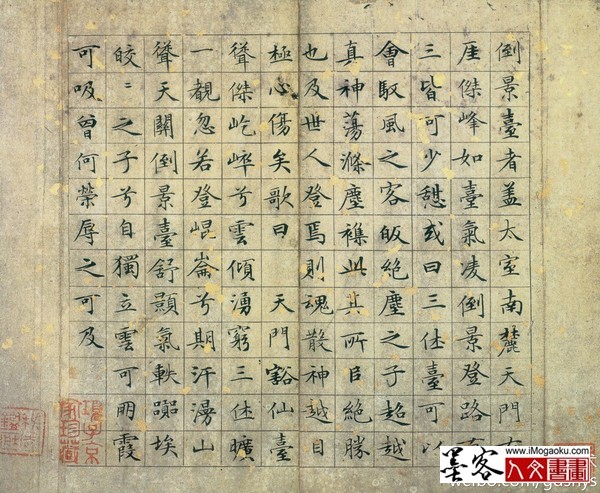 倒景臺者盖太室南麓天門右
厓傑峰如臺氣凌倒景登路有
三皆可少憇或曰三休臺可以
會馭風之客皈絶塵之子超越
真神蕩滌塵襍此其所㠯絶勝
也及世人登焉則魂散神越目
極心傷矣歌曰　天門豁仙臺
聳傑屹崒兮雲傾湧窮三休曠
一覩忽若登崐崙兮期汗漫山
聳天關倒景臺舒顥氣軼嚻埃
皎〻之子兮自獨立雲可朋霞
可吸曾何榮辱之可及
墨客
www.iMogaoku.com
人文書畫
weibo.com/gushys